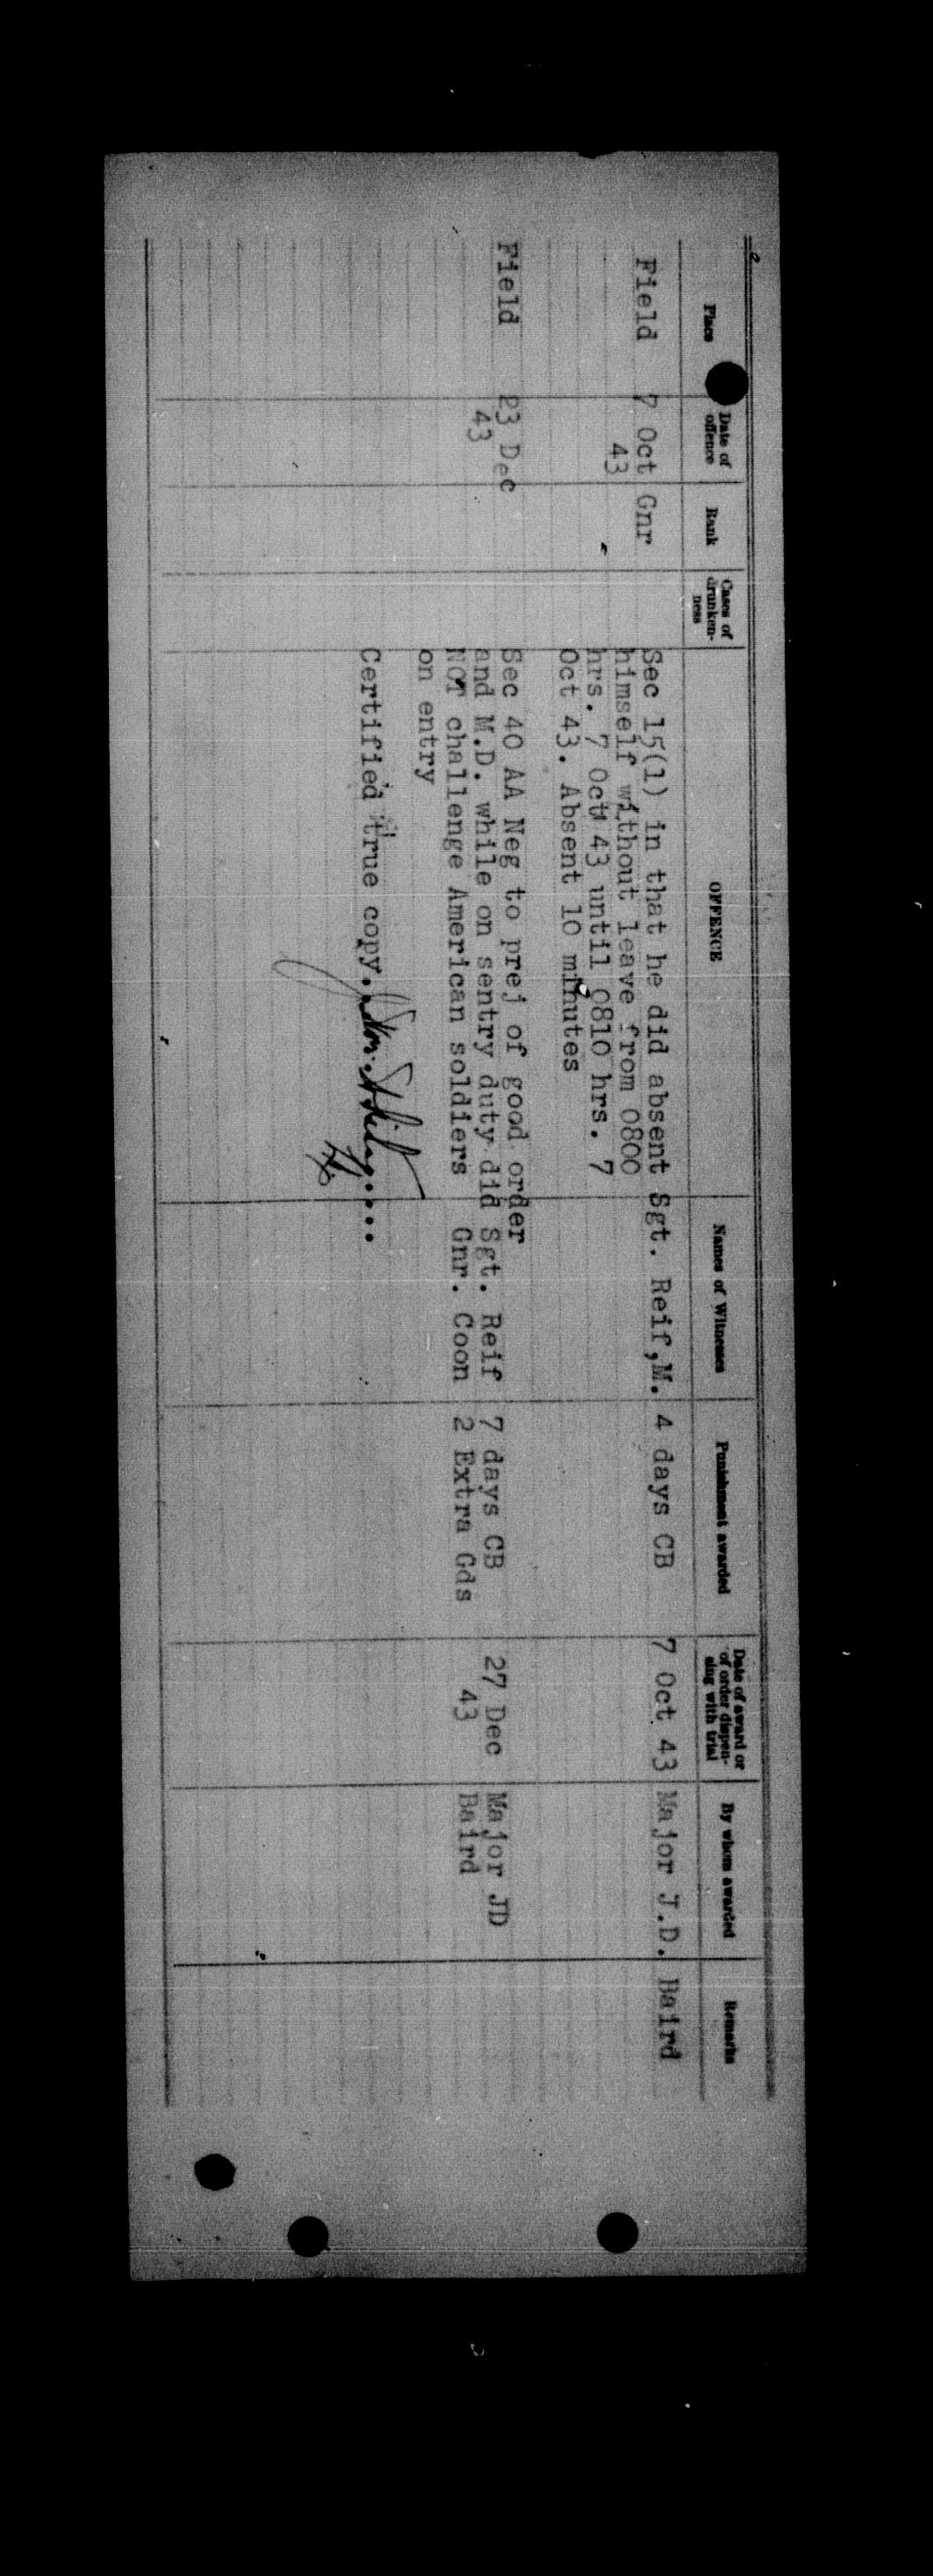 Place Date of offence Rank Cases of drunken-ness OFFENCE Names of Witnesses Punishment awarded Date of award or of order dispen-sing with trial By whom awarded Remarks
Field 7 Oct Gnr Sec 15(1) in that he did absent Sgt. Reif,M. 4 days CB 7 Oct 43 Major J.D. Baird
43 himself without leave from 0800
hrs. 7 Oct 43 until 0810 hrs. 7
Oct 43. Absent 10 minutes
Field 23 Dec Sec 40 AA Neg to prej of good order
43 and M.D. while on sentry duty did Sgt. Reif 7 days CB 27 Dec Major JD
NOT challenge American soldiers Gnr. Coon 2 Extra Gds 43 Baird
on entry
Certified true copy